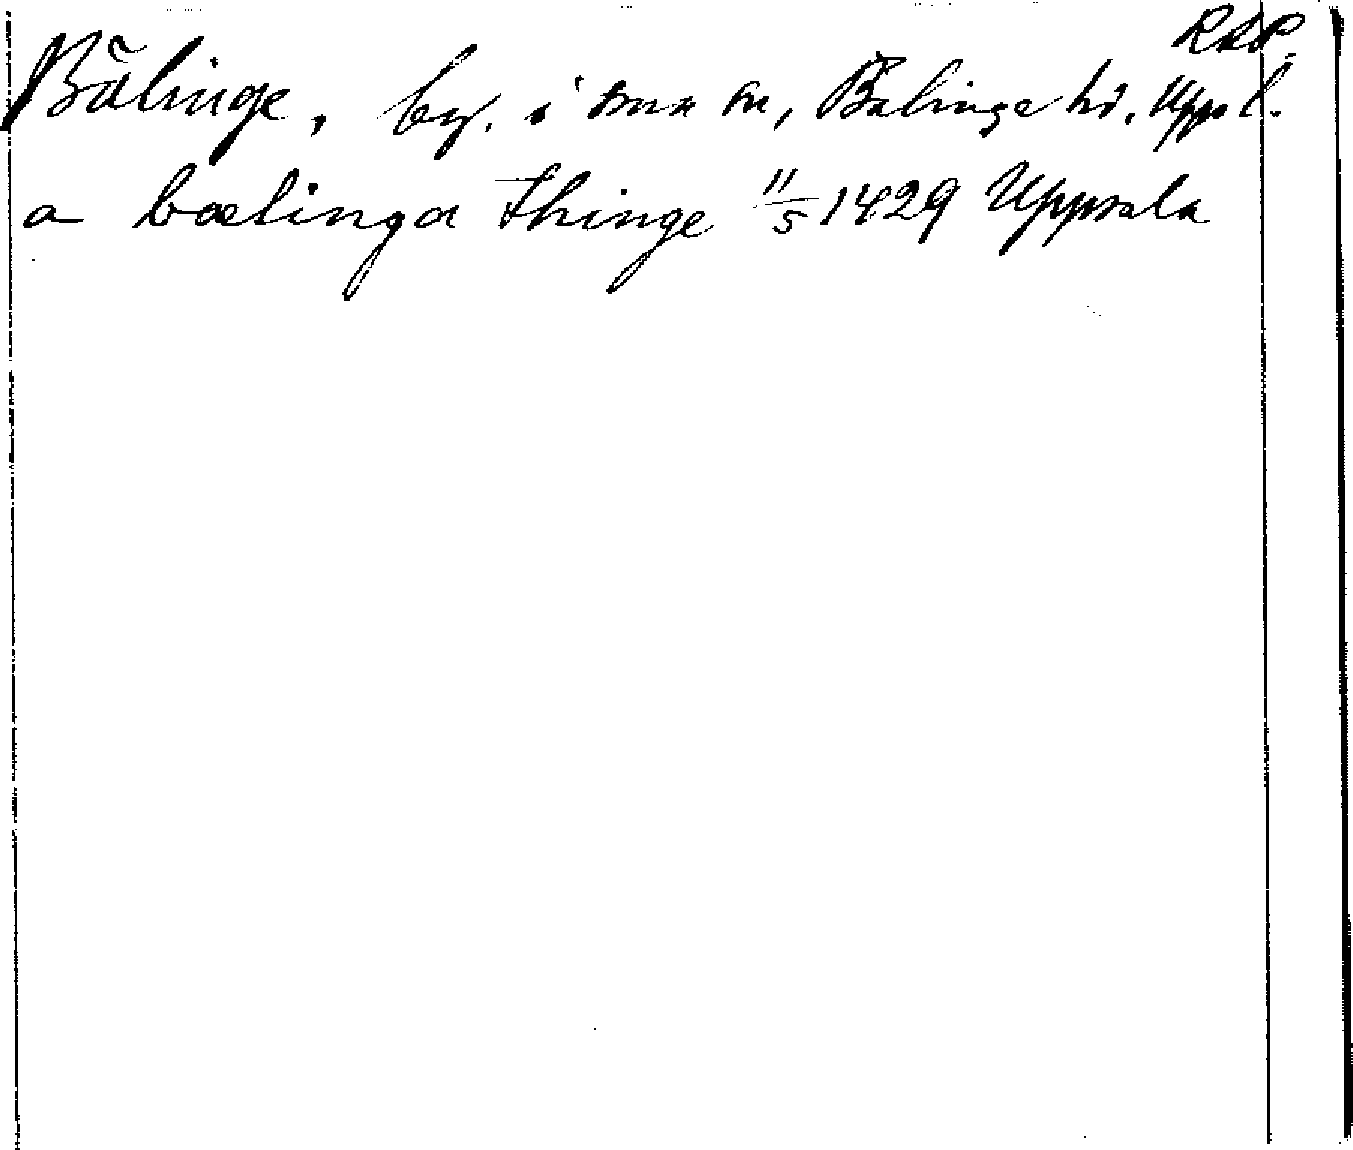 RAP.
Bälinge, by. i smn sn, Bälinge hd. Uppl.
a bælinga thinge 11/5 1429 Uppsala